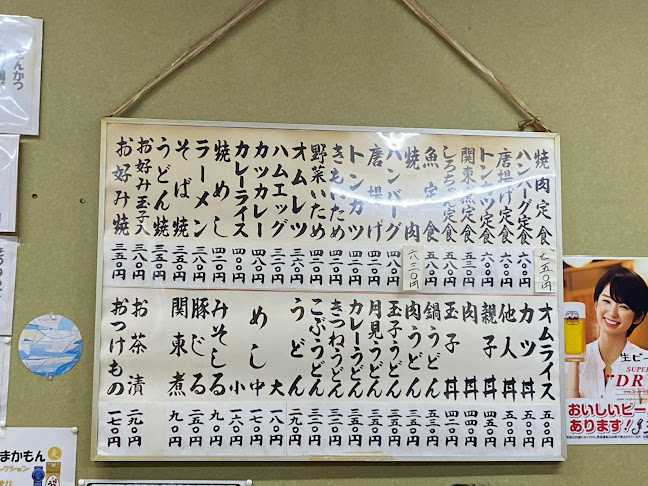 焼肉定食 七五〇円
ハンバーグ定食 六〇〇円
唐揚げ定食 六〇〇円
トンカツ定食 六〇〇円
関東煮定食 五三〇円
しろちゃん定食 五八〇円
魚定食 五八〇円
焼肉 六二〇円
ハンバーグ 四八〇円
唐揚げ 四八〇円
トンカツ 四二〇円
きもいため 四二〇円
野菜いため 四二〇円
オムレツ 四二〇円
ハムエッグ
カツカレー 四八〇円
カレーライス 四〇〇円
焼めし 四二〇円
ラーメン 三八〇円
そば焼 三八〇円
うどん焼 三五〇円
お好み玉子入 三五〇円
お好み焼 三五〇円
オムライス 五〇〇円
カツ丼
他人丼 五〇〇円
親子丼
肉丼
玉子丼 四二〇円
鍋うどん 五三〇円
肉うどん
玉子うどん 三五〇円
月見うどん 三五〇円
カレーうどん
きつねうどん
こぶうどん 三二〇円
うどん 二九〇円
めし 大 一八〇円
中 一七〇円
小 一六〇円
みそしる 九〇円
豚じる 二五〇円
関東煮 九〇円
お茶漬 二九〇円
おつけもの 一七〇円
生ビー
SUPER
DR
おいしいビー
あります!!
んかつ
まかもん